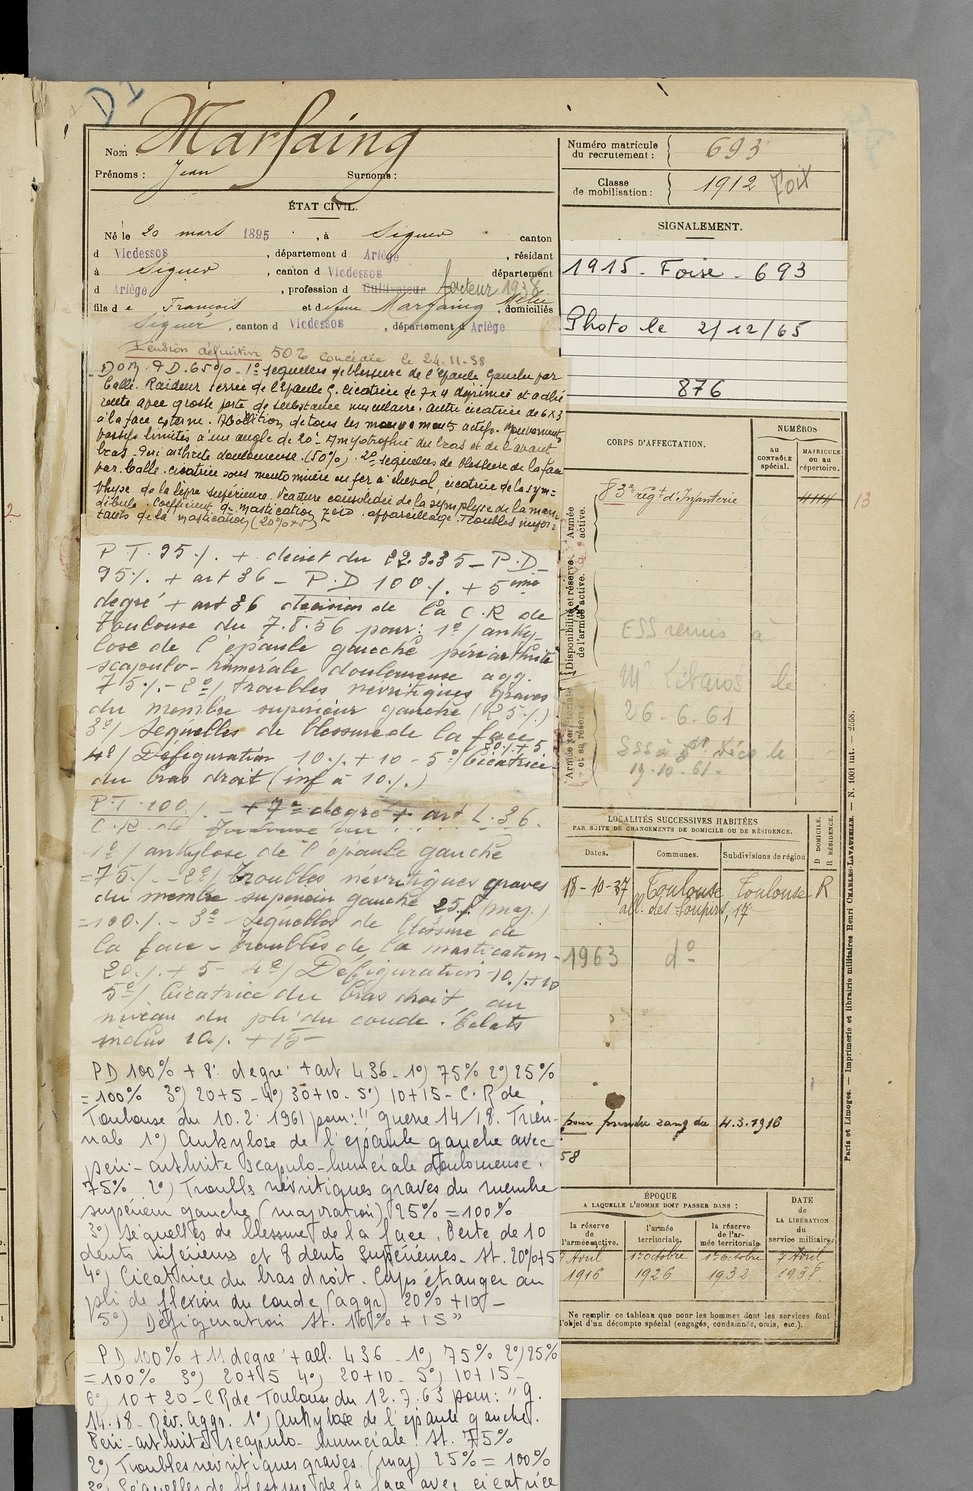 D I
Nom : Marfaing
Prénoms : Jean Surnoms :
ÉTAT CIVIL.
Né le 20 mars 1895 , à Siguer canton
d Vicdessos , département d Ariège , résidant
à Siguer , canton d Vicdessos département
d Ariège , profession d Cultivateur facteur 1938
fils d e François et de feue Marfaing , domiciliés
Siguer , canton d Vicdessos , département d Ariège
Pension définitive 50% concédée le 24.11.38
65% - 1º sequelles de blessure de l'épaule gauche par
balle. Raideur serrée de l'épaule G. cicatrice de 7x4 déprimée et adhé
rente avec grosse perte de substance musculaire. autre cicatrice de 6x3
à la face externe. Abolition de tous les mouvements actifs. Mouvements
passifs limités à un angle de 20º. Amyotrophie du bras et de l'avant
bras. Peri arthrite douloureuse. (50%) 2º sequelles de blessure de la face
par balle. cicatrice sous mentonnière en fer à cheval, cicatrice de la sym=
physe de la lèvre supérieure. Fracture consolidée de la symphyse de la man
dibule. Coefficient de mastication zéro. appareillage. Troubles impor=
tants de la mastication (20%+5)
P.T. 95%. + décret du 22.3.35 - P.D-
95%. + art 36 - P.D 100%. + 5ème
degré + art 36 décision de la C.R de
Toulouse du 7.8.56 pour: 1º/ anky-
lose de l'épaule gauche périarthrite
scapulo-humérale douloureuse agg.
75%. - 2º/ troubles nevritiques graves
du membre supérieur gauche (25%.)
3º/ Séquelles de blessure de la face
20%+5
4º/ Défiguration 10%. + 10 - 5º/ Cicatrice
du bras droit (inf à 10%.)
P.T. 100%. - + 7e degré + art L.36.
C.R de Toulouse du
1º/ ankylose de l'épaule gauche
= 75%. - 2º/ troubles nevritiques graves
du membre supérieur gauche 25% (maj.)
= 100%. - 3º Sequelles de blessure de
la face - troubles de la mastication-
20%. + 5 - 4º/ Défiguration 10%.+10
5º/ Cicatrice du bras droit, au
niveau du pli du coude. Eclats
inclus 10%. + 15-
PD 100% + 8: degré + art 436 - 1º) 75% 2º) 25%
= 100% 3º) 20+5 - 4º) 30+10 - 5º) 10+15 - C.R de
Toulouse du 10.2.1961 pour: " guerre 14/18. Trien-
nale 1º) Ankylose de l'épaule gauche avec
peri-arthrite scapulo-humérale douloureuse.
75% 2º) Troubles névritiques graves du membre
supérieur gauche (majoration) 25% = 100%
3º) Séquelles de blessure de la face. Perte de 10
dents inférieures et 8 dents supérieures. St. 20%+5
4º) Cicatrice du bras droit. Corps étranger au
pli de flexion du coude (aggr) 20% + 10 -
5º) Défiguration St. 10% + 15 "
PD 100% + 11 degré + all. 436 - 1º) 75% 2º) 25%
= 100% 3º) 20+5 4º) 20+10 - 5º) 10+15 -
6º) 10+20 - C R de Toulouse du 12.7.63 pour: " g.
14.18 - Rév. aggr. 1º) Ankylose de l'épaule gauche.
Péri-arthrite scapulo-humérale. St. 75%
2º) Troubles névritiques graves. (maj) 25% = 100%
3º) Séquelles de blessure de la face avec cicatrice
Numéro matricule
du recrutement : 693
Classe
de mobilisation : 1912 Foix
SIGNALEMENT.
1915 - Foix - 693
Photo le 2/12/65
876
CORPS D'AFFECTATION.
NUMÉROS
au
CONTRÔLE
spécial.
MATRICULE
ou au
répertoire.
83e régt d'Infanterie
13
Disponibilité et réserve
de l'armée active.
Armée
active.
Armée territoriale
et sa réserve.
ESS remis à
Mr le
26-6-61
le
19.10.61.
LOCALITÉS SUCCESSIVES HABITÉES
PAR SUITE DE CHANGEMENTS DE DOMICILE OU DE RÉSIDENCE.
Dates.
Communes.
Subdivisions de région
D DOMICILE.
R RÉSIDENCE.
18-10-37 Toulouse Toulouse R
all. des Soupirs, 17
1963 dº
pour prendre rang du 4.3.1916
58
ÉPOQUE
A LAQUELLE L'HOMME DOIT PASSER DANS :
DATE
DE LA
LIBÉRATION
du
service militaire.
la réserve
de
l'armée active.
l'armée
territoriale.
la réserve
de l'ar-
mée territoriale.
1er octobre 1er octobre
1916 1926 1932 1938
Ne remplir ce tableau que pour les hommes dont les services font
l'objet d'un décompte spécial (engagés, condamnés, omis, etc.).
Paris et Limoges. — Imprimerie et librairie militaires Henri CHARLES-LAVAUZELLE. — N. 1001 int. — 2558.
2